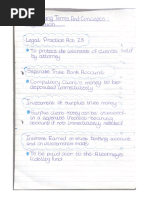 Legal Practice Act 28
To protect the interests of clients held
by attorney
Separate Trust Bank Account
Compulsory Clients money to be
deposited immediately
Investments of surplus trust money
Surplus client money can be invested
in a separate interest-bearing
account if not immediately needed
Interest Earned on trust banking account
and on investments made
To be paid over to the Attorneys
Fidelity fund